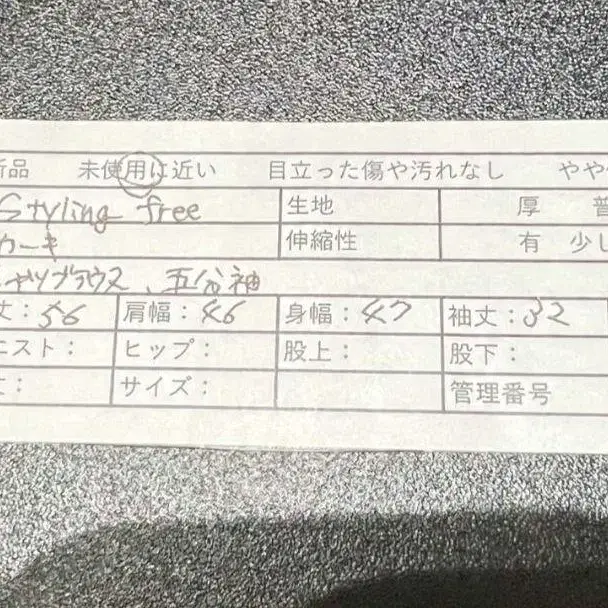 新品 未使用に近い 目立った傷や汚れなし やや
Styling free 生地 厚 普
カーキ 伸縮性 有 少し
シャツブラウス、五分袖
丈：56 肩幅：46 身幅：47 袖丈：32
エスト： ヒップ： 股上： 股下：
丈： サイズ： 管理番号